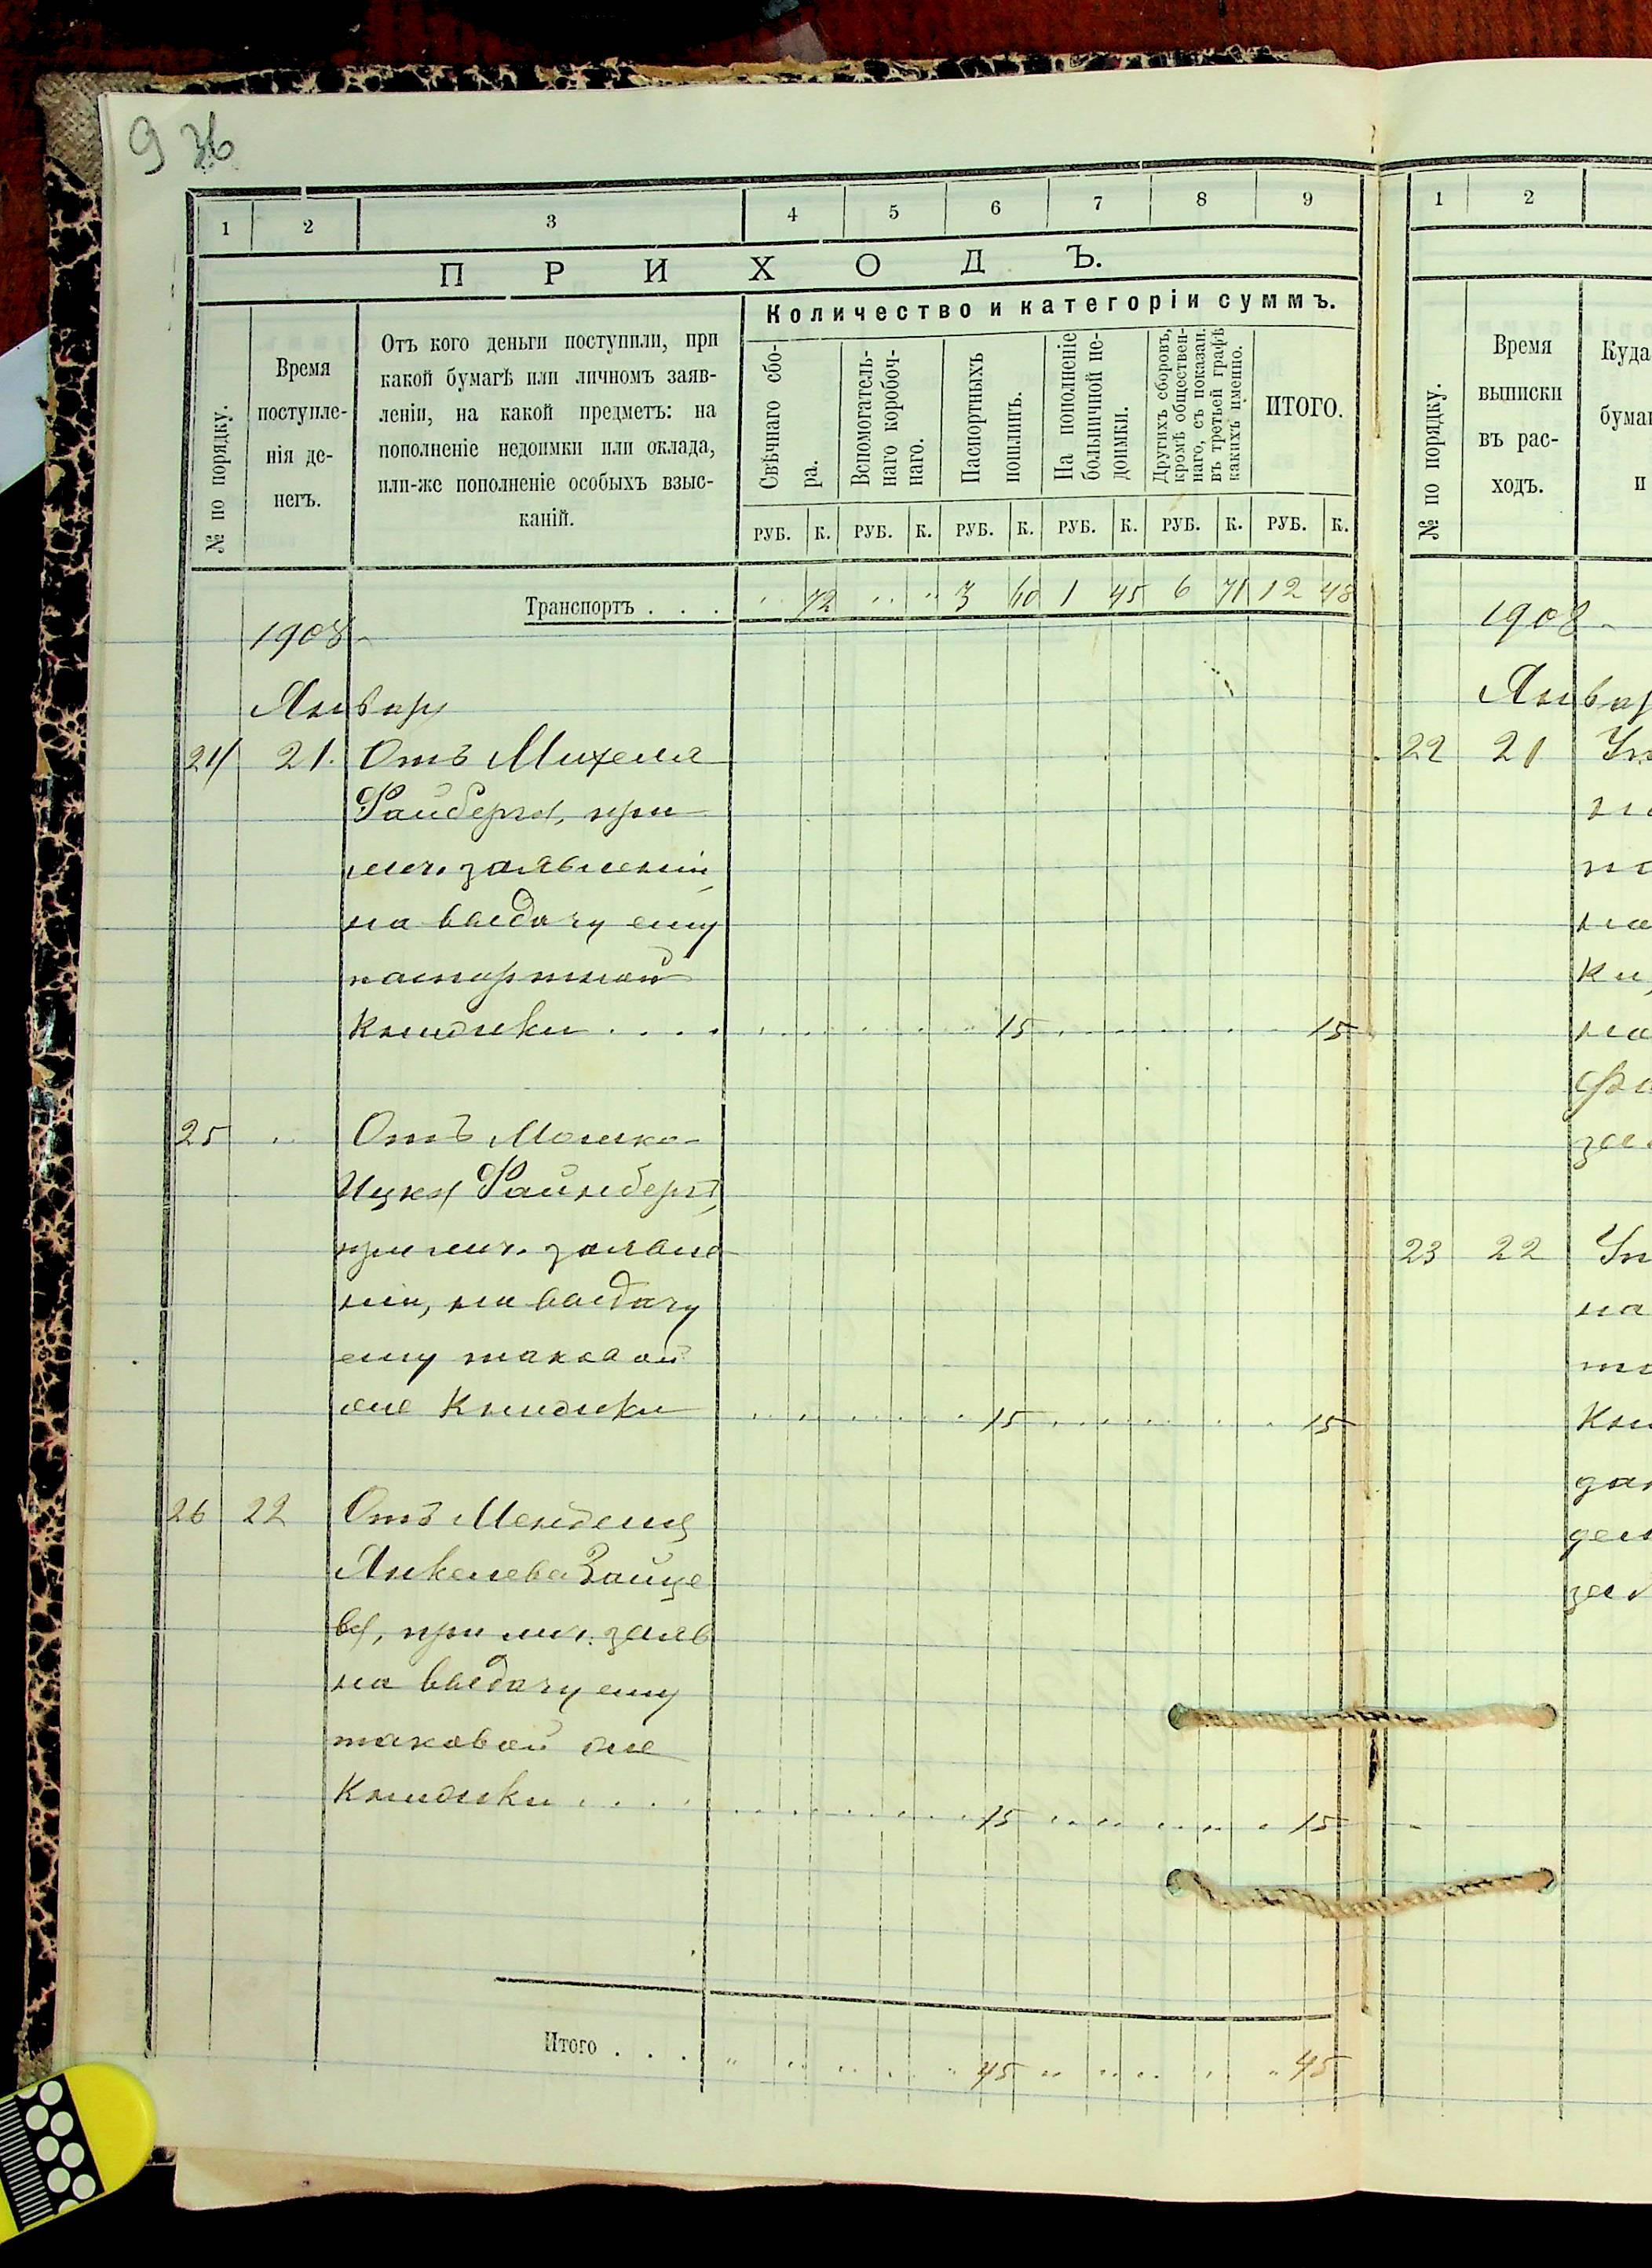 9 36
1 2 3 4 5 6 7 8 9
ПРИХОДЪ.
№ по порядку.
Время
поступле-
нія де-
негъ.
Отъ кого деньги поступили, при
какой бумагѣ или личномъ заяв-
леніи, на какой предметъ: на
пополненіе недоимки или оклада,
или-же пополненіе особыхъ взыс-
каній.
Количество и категоріи суммъ.
Свѣчнаго сбо-
ра.
Вспомогатель-
наго коробоч-
наго.
Паспортныхъ
пошлинъ.
На пополненіе
больничной не-
доимки.
Другихъ сборовъ,
кромѣ обществен-
наго, съ показан.
въ третьей графѣ
какихъ именно.
ИТОГО.
РУБ. К. РУБ. К. РУБ. К. РУБ. К. РУБ. К. РУБ. К.
Транспортъ . . . " 72 " " 3 60 1 45 6 71 12 48
1908
Январь
24 21. Отъ Михеля
Файберга, при
лич. заявленіи,
на выдачу ему
паспортной
Книжки . . . . 15 15
25 " Отъ Мошко-
Ицка Файнберга,
при лич. заявле
ніи, на выдачу
ему таковой
же Книжки 15 15
26 22 Отъ Менделя
Янкелева Зайце
ва, при лич. заяв
на выдачу ему
таковой же
Книжки . . . . 15 15
Итого . . . 45 45
1 2
№ по порядку.
Время
выписки
въ рас-
ходъ.
Куда
бума
и
1908
Январ
22 21
на
Ки
23 22
на
Кни